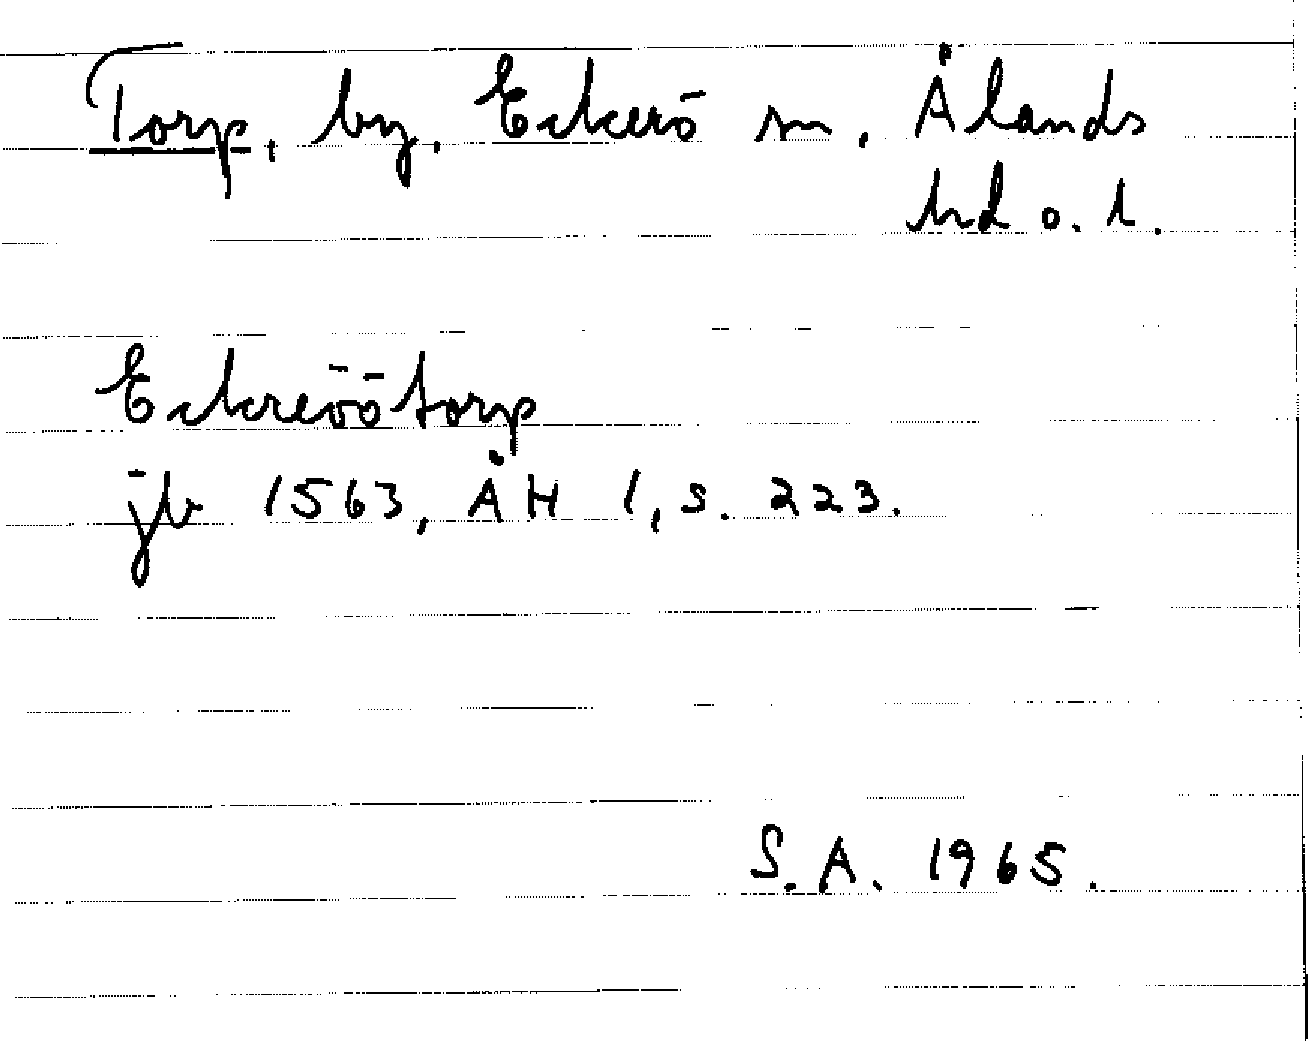 Torp, by, Eckerö sn, Ålands
hd o. l.
Eckreöötorp
jb 1563, ÅH 1, s. 223.
S.A. 1965.